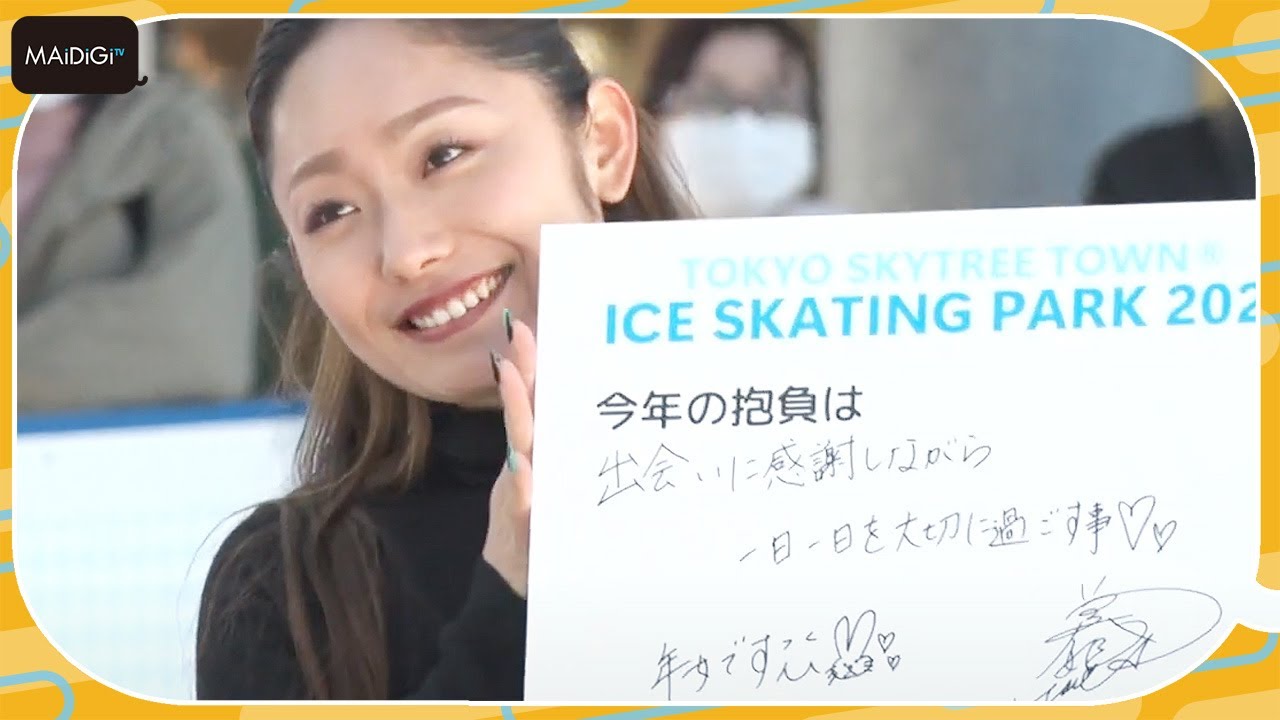 MAiDiGiTV
TOKYO SKYTREE TOWN®
ICE SKATING PARK 202
今年の抱負は
出会いに感謝しながら
一日一日を大切に過ごす事♡♡
年女です